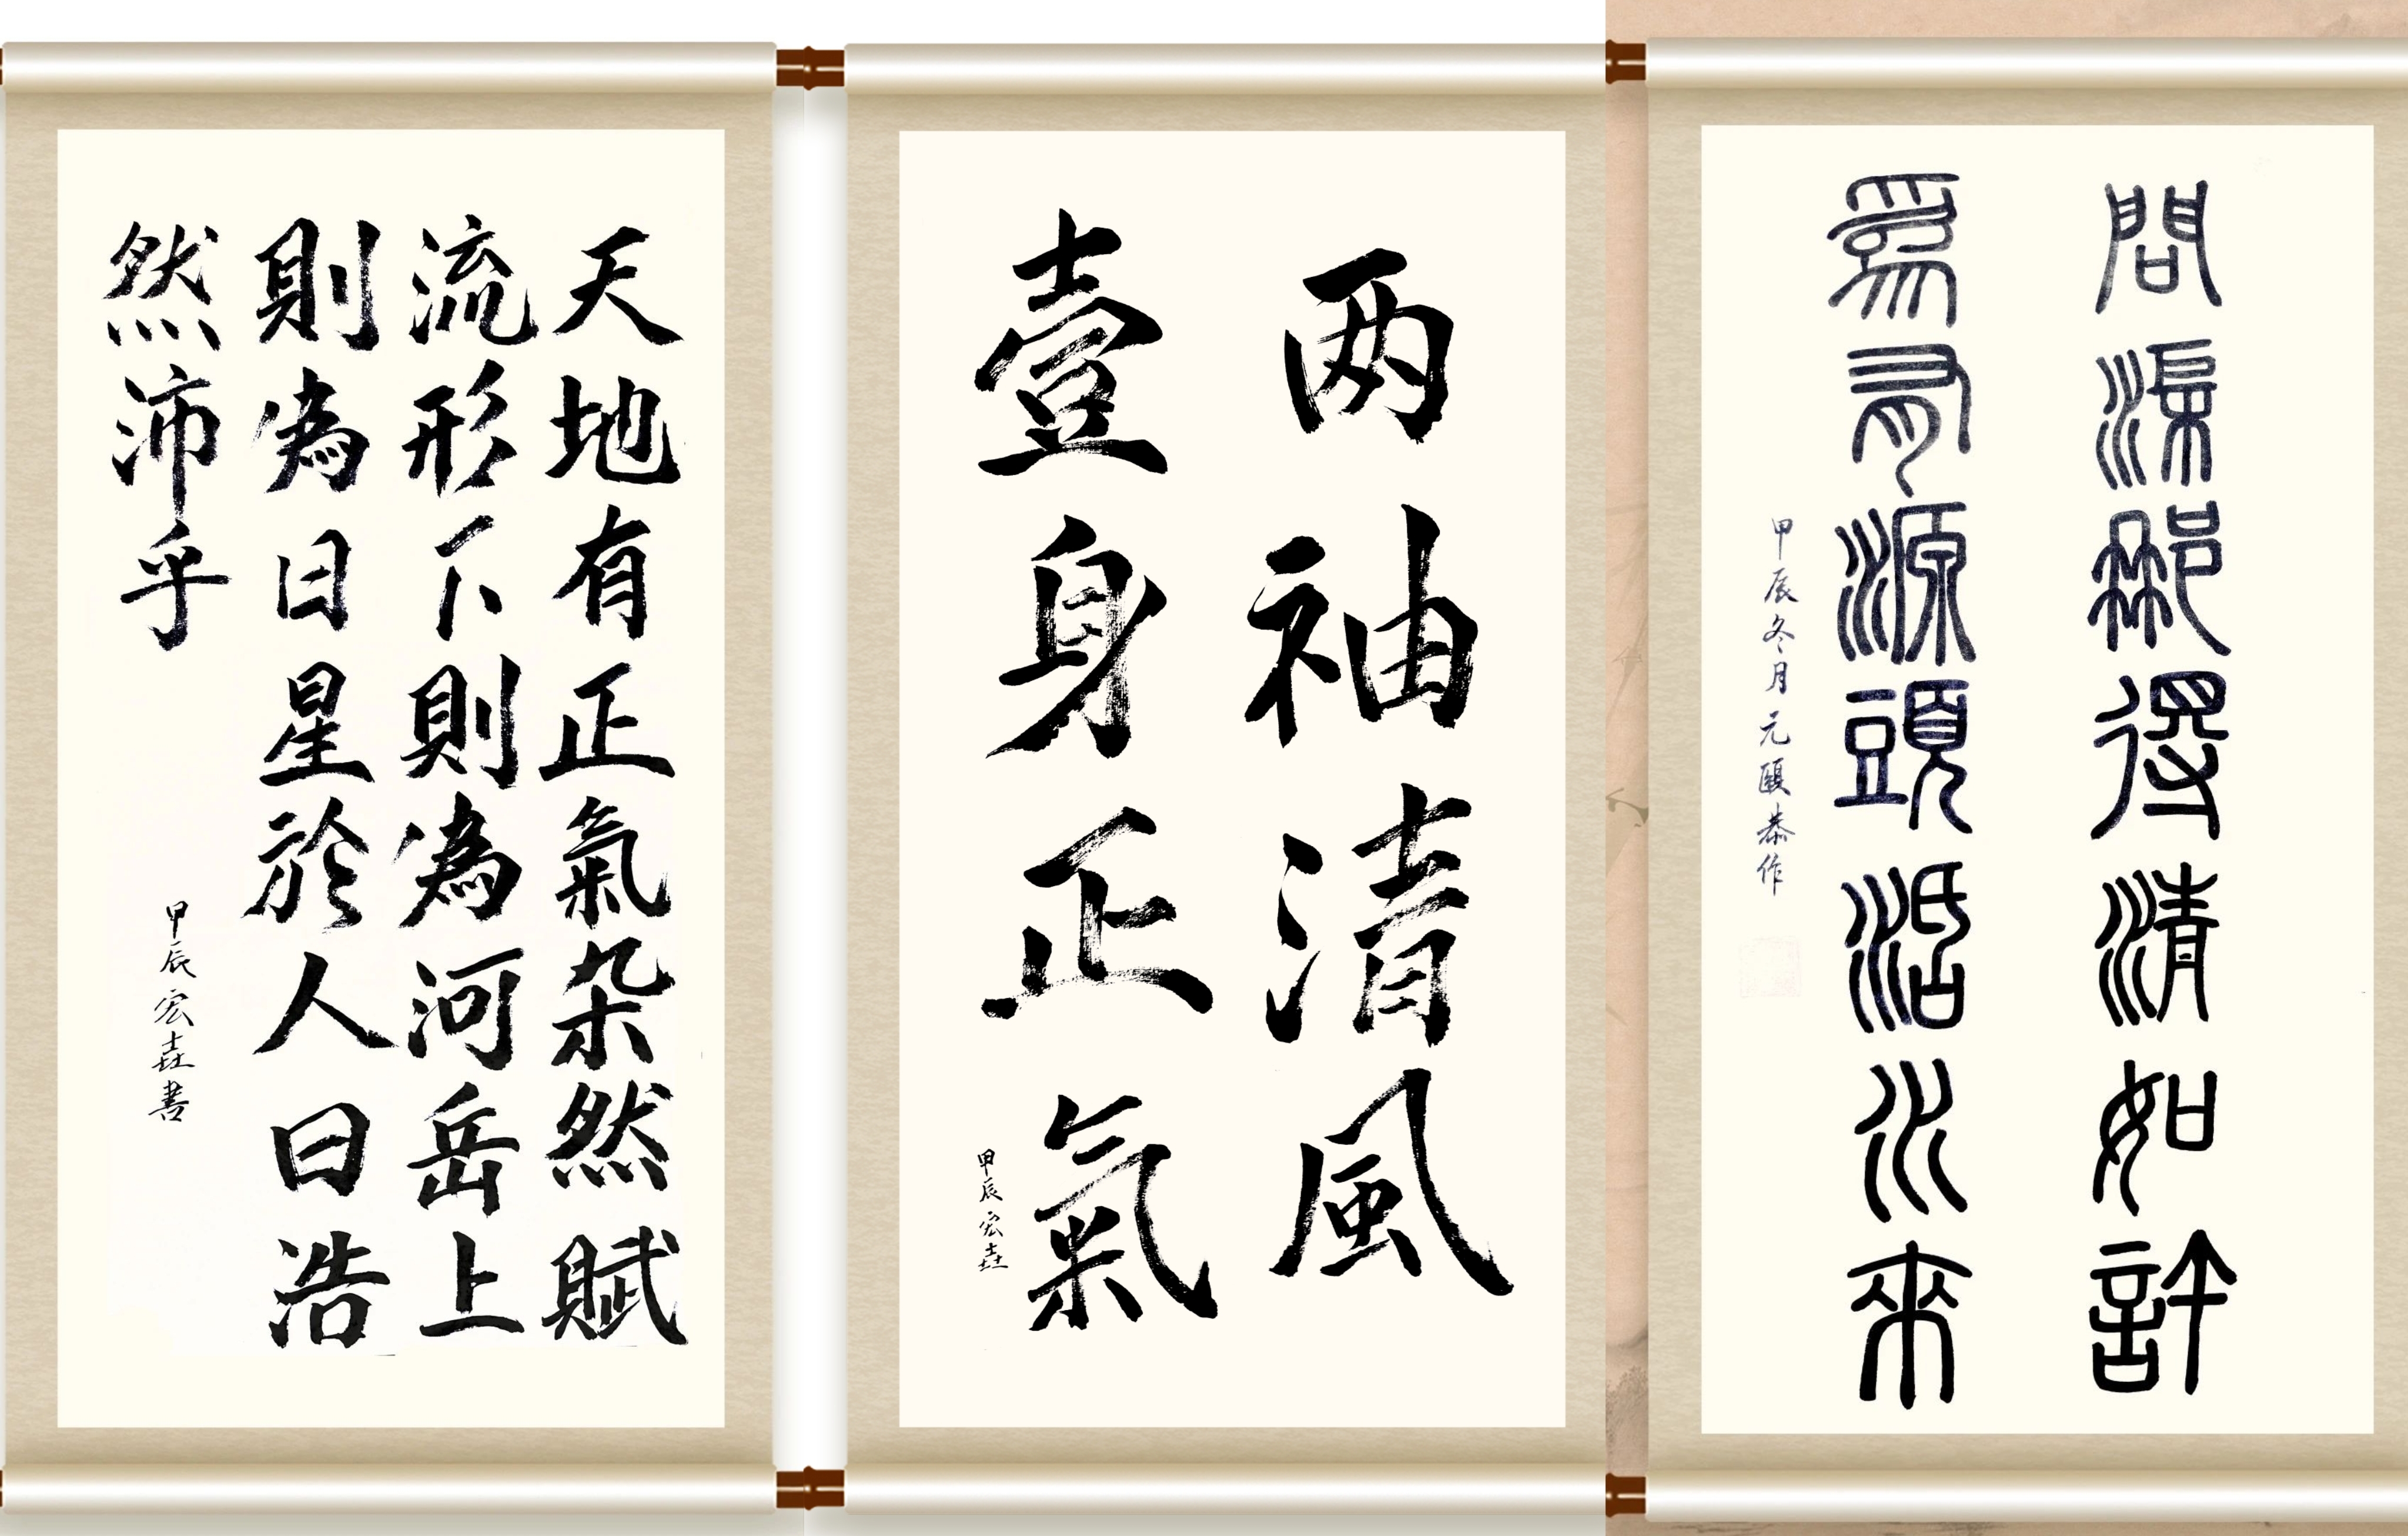 天地有正氣杂然賦
流形下則為河岳上
則為日星於人曰浩
然沛乎
甲辰宏垚書
两袖清風
壹身正氣
甲辰宏垚
問渠那得清如許
爲有源頭活水來
甲辰冬月元頤恭作